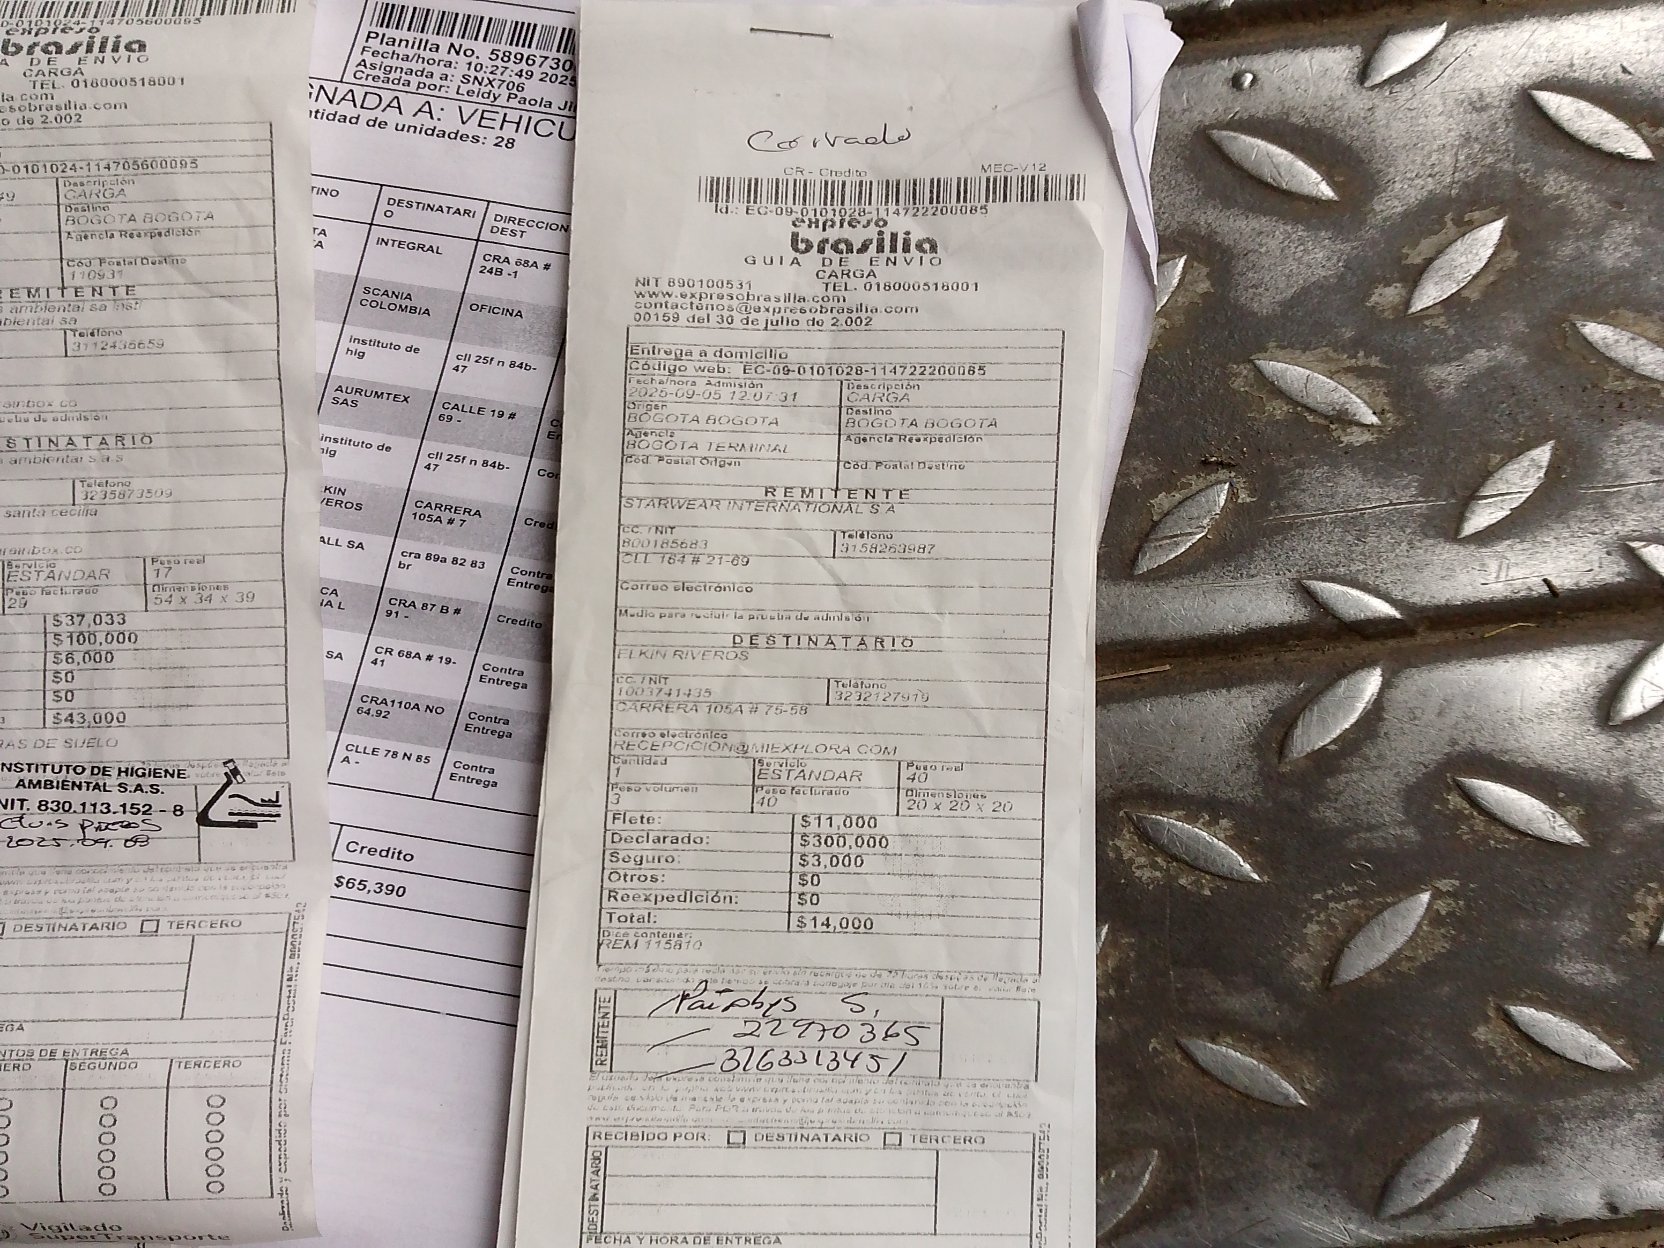 expreso
brasilia
A DE ENVIO
CARGA
TEL. 018000518001
la.com
esobrasilia.com
o de 2.002
0-0101024-114705600095
Descripción
CARGA
Destino
BOGOTA BOGOTA
Agencia Reexpedición
Cód. Postal Destino
110931
REMITENTE
ambiental sa
Teléfono
3112436659
STINATARIO
ambiental s a s
Teléfono
3235873509
santa cecilia
Servicio
ESTANDAR
Peso real
17
Peso facturado
29
Dimensiones
54 x 34 x 39
$37,033
$100,000
$6,000
$0
$0
$43,000
RAS DE SUELO
INSTITUTO DE HIGIENE
AMBIENTAL S.A.S.
NIT. 830.113.152 - 8
DESTINATARIO TERCERO
NTOS DE ENTREGA
SEGUNDO TERCERO
Vigilado
SuperTransporte
Planilla No. 5896730
Fecha/hora: 10:27:49 2025
Asignada a: SNX706
Creada por: Leidy Paola Ji
GNADA A: VEHICU
ntidad de unidades: 28
TINO DESTINATARI
O DIRECCION
DEST
INTEGRAL CRA 68A #
24B -1
SCANIA
COLOMBIA OFICINA
instituto de
hig cll 25f n 84b-
47
AURUMTEX
SAS CALLE 19 #
69 -
instituto de
hig cll 25f n 84b-
47
KIN
VEROS CARRERA
105A # 7 Cred
ALL SA cra 89a 82 83
br Contra
Entrega
CA
IA L CRA 87 B #
91 - Credito
SA CR 68A # 19-
41 Contra
Entrega
CRA110A NO
64.92 Contra
Entrega
CLLE 78 N 85
A - Contra
Entrega
Credito
$65,390
Cerrado
CR - Credito MEC-V12
Id.: EC-09-0101028-114722200085
expreso
brasilia
GUIA DE ENVIO
CARGA
NIT 890100531 TEL. 018000518001
www.expresobrasilia.com
contactenos@expresobrasilia.com
00159 del 30 de julio de 2.002
Entrega a domicilio
Código web: EC-09-0101028-114722200085
Fecha/hora Admisión
2025-09-05 12:07:31
Descripción
CARGA
Origen
BOGOTA BOGOTA
Destino
BOGOTA BOGOTA
Agencia
BOGOTA TERMINAL
Agencia Reexpedición
Cód. Postal Origen Cód. Postal Destino
REMITENTE
STARWEAR INTERNATIONAL S A
CC. / NIT
800185683
Teléfono
3158263987
CLL 164 # 21-69
Correo electrónico
Medio para recibir la prueba de admisión
DESTINATARIO
ELKIN RIVEROS
CC. / NIT
1003741435
Teléfono
3232127919
CARRERA 105A # 75-58
Correo electrónico
RECEPCION@MIEXPLORA COM
Cantidad
1
Servicio
ESTANDAR
Peso real
40
Peso volumen
3
Peso facturado
40
Dimensiones
20 x 20 x 20
Flete: $11,000
Declarado: $300,000
Seguro: $3,000
Otros: $0
Reexpedición: $0
Total: $14,000
Dice contener:
REM 115810
REMITENTE
S.
22970365
3163313451
RECIBIDO POR: DESTINATARIO TERCERO
DESTINATARIO
FECHA Y HORA DE ENTREGA